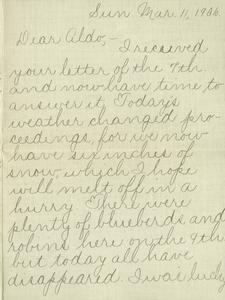 Sun. Mar. 11, 1906.
Dear Aldo,-
I received
your letter of the 9th
and now have time to
answer it. Today's
weather changed pro-
ceedings, for we now
have six inches of
snow, which I hope
will melt off in a
hurry. There were
plenty of bluebirds and
robins here on the 9th
but today all have
disappeared. I was lucky